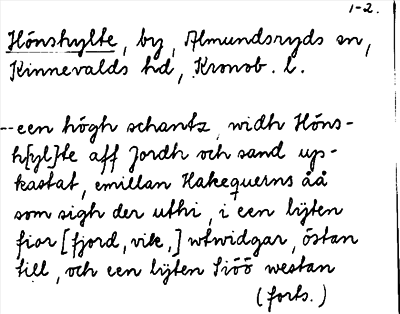 1-2.
Hönshylte, by, Almundsryds sn,
Kinnevalds hd, Kronob. l.
--een högh schantz widh Höns-
h[yl]te aff Jordh och sand up-
kastat, emillan Hakequerns åå
som sigh der uthi, i een lÿten
fior [fjord, vik,] wtwidgar, östan
till, och een lÿten Siöö westan
(forts.)